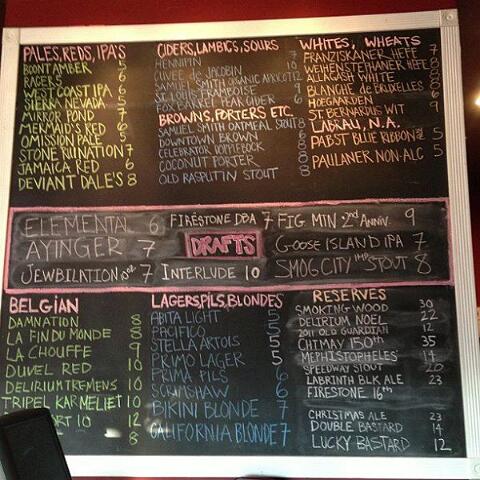 PALES, REDS, IPA'S
BOONT AMBER 5
RACER 5 6
WEST COAST IPA 6
SIERRA NEVADA 5
MIRROR POND 7
MERMAID'S RED 6
OMISSION PALE 5
STONE RUINATION 7
JAMAICA RED 6
DEVIANT DALE'S 8
CIDERS, LAMBICS, SOURS
HENNIPIN 7
CUVEE de JACOBIN 10
SAMUEL SMITH ORGANIC APRICOT 12
ST. LOUIS FRAMBOISE
FOX BARREL PEAR CIDER 6
BROWNS, PORTERS ETC.
SAMUEL SMITH OATMEAL STOUT 8
DOWNTOWN BROWN
CELEBRATOR DOPPLEBOCK
COCONUT PORTER
OLD RASPUTIN STOUT 8
WHITES, WHEATS
FRANZISKANER HEFE 7
WEIHENSTEPHANER HEFE 8
ALLAGASH WHITE
BLANCHE de BRUXELLES
HOEGAARDEN 6
ST BERNARDUS WIT 9
LABEAU, N.A.
PABST BLUE RIBBON 5
PAULANER NON-ALC 5
ELEMENTAL 6
AYINGER 7
JEWBILATION 7
FIRESTONE DBA 7
DRAFTS
INTERLUDE 10
FIG MIN 2nd ANNIV. 9
GOOSE ISLAND IPA 7
SMOG CITY IMP STOUT 8
BELGIAN
DAMNATION 8
LA FIN DU MONDE 8
LA CHOUFFE 9
DUVEL RED 10
DELIRIUM TREMENS 10
TRIPEL KARMELIET 10
ORT 10 12
8
LAGERS, PILS, BLONDES
ABITA LIGHT 5
PACIFICO 5
STELLA ARTOIS 5
PRIMO LAGER 5
PRIMA PILS 6
SCRIMSHAW 6
BIKINI BLONDE 7
CALIFORNIA BLONDE 7
RESERVES
SMOKING WOOD 30
DELIRIUM NOEL 22
2011 OLD GUARDIAN 12
CHIMAY 150th 35
MEPHISTOPHELES 14
SPEEDWAY STOUT 20
LABRINTH BLK ALE 23
FIRESTONE 16th
CHRISTMAS ALE 23
DOUBLE BASTARD 14
LUCKY BASTARD 12